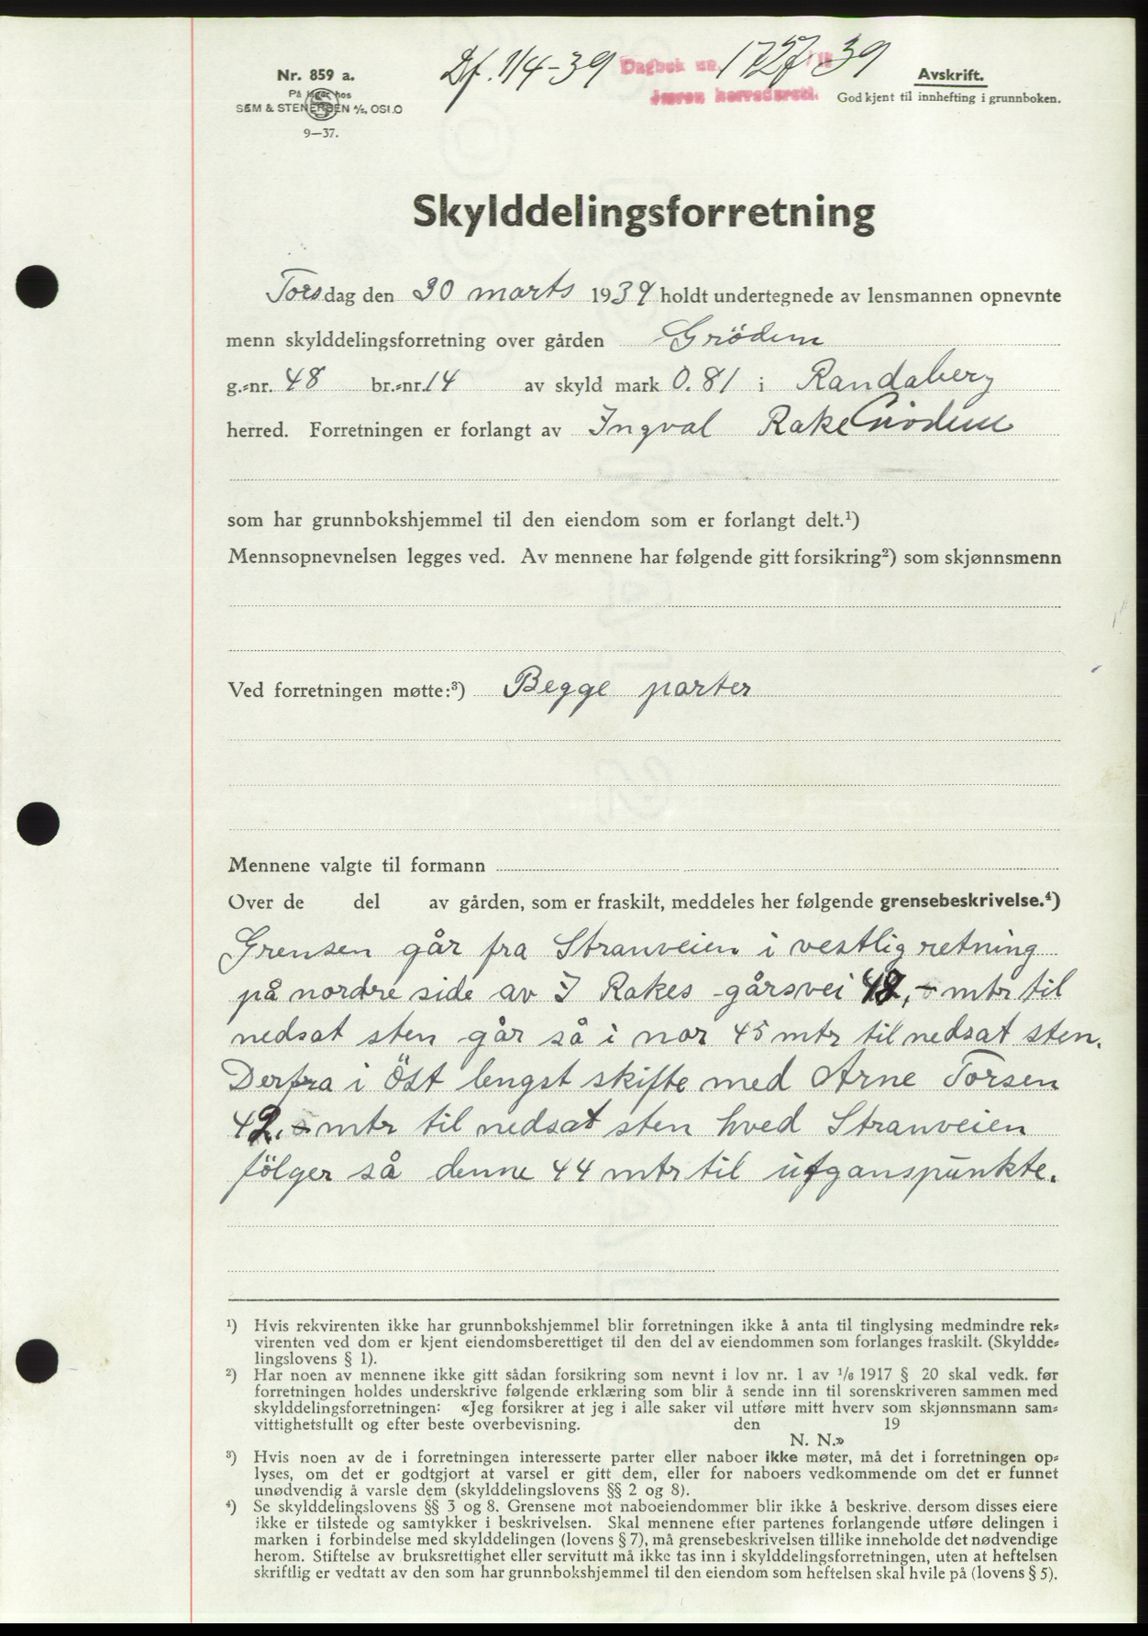 Nr. 859 a.
På lager hos
SEM & STENERSEN A/S, OSLO
9—37.
Df. 1/4-39
Dagbok nr. 1727/19 39
Jæren herredsrett.
Avskrift.
Godkjent til innhefting i grunnboken.
Skylddelingsforretning
Torsdag den 30 marts 1939 holdt undertegnede av lensmannen opnevnte
menn skylddelingsforretning over gården Grödem
g.-nr. 48 br.-nr. 14 av skyld mark 0.81 i Randaberg
herred. Forretningen er forlangt av Ingval Rake Grödem
som har grunnbokshjemmel til den eiendom som er forlangt delt.¹)
Mennsopnevnelsen legges ved. Av mennene har følgende gitt forsikring²) som skjønnsmenn
Ved forretningen møtte:³) Begge parter
Mennene valgte til formann
Over de del av gården, som er fraskilt, meddeles her følgende grensebeskrivelse.⁴)
Grensen går fra Stranveien i vestlig retning
på nordre side av I Rakes gårsvei 48,- mtr til
nedsat sten går så i nor 45 mtr til nedsat sten.
Derfra i Öst lengst skifte med Arne Torsen
42,- mtr til nedsat sten hved Stranveien
fölger så denne 44 mtr til utganspunkte.
¹) Hvis rekvirenten ikke har grunnbokshjemmel blir forretningen ikke å anta til tinglysing medmindre rek-
virenten ved dom er kjent eiendomsberettiget til den del av eiendommen som forlanges fraskilt. (Skyldde-
lingslovens § 1).
²) Har noen av mennene ikke gitt sådan forsikring som nevnt i lov nr. 1 av ¹/₆ 1917 § 20 skal vedk. før
forretningen holdes underskrive følgende erklæring som blir å sende inn til sorenskriveren sammen med
skylddelingsforretningen: «Jeg forsikrer at jeg i alle saker vil utføre mitt hverv som skjønnsmann sam-
vittighetsfullt og efter beste overbevisning. den 19
N. N.»
³) Hvis noen av de i forretningen interesserte parter eller naboer ikke møter, må det i forretningen op-
lyses, om det er godtgjort at varsel er gitt dem, eller for naboers vedkommende om det er funnet
unødvendig å varsle dem (skylddelingslovens §§ 2 og 8).
⁴) Se skylddelingslovens §§ 3 og 8. Grensene mot naboeiendommer blir ikke å beskrive, dersom disses eiere
ikke er tilstede og samtykker i beskrivelsen. Skal mennene efter partenes forlangende utføre delingen i
marken i forbindelse med skylddelingen (lovens § 7), må grensebeskrivelsen tillike inneholde det nødvendige
herom. Stiftelse av bruksrettighet eller servitutt må ikke tas inn i skylddelingsforretningen, uten at heftelsen
skriftlig er vedtatt av den som har grunnbokshjemmel til den eiendom som heftelsen skal hvile på (lovens § 5).